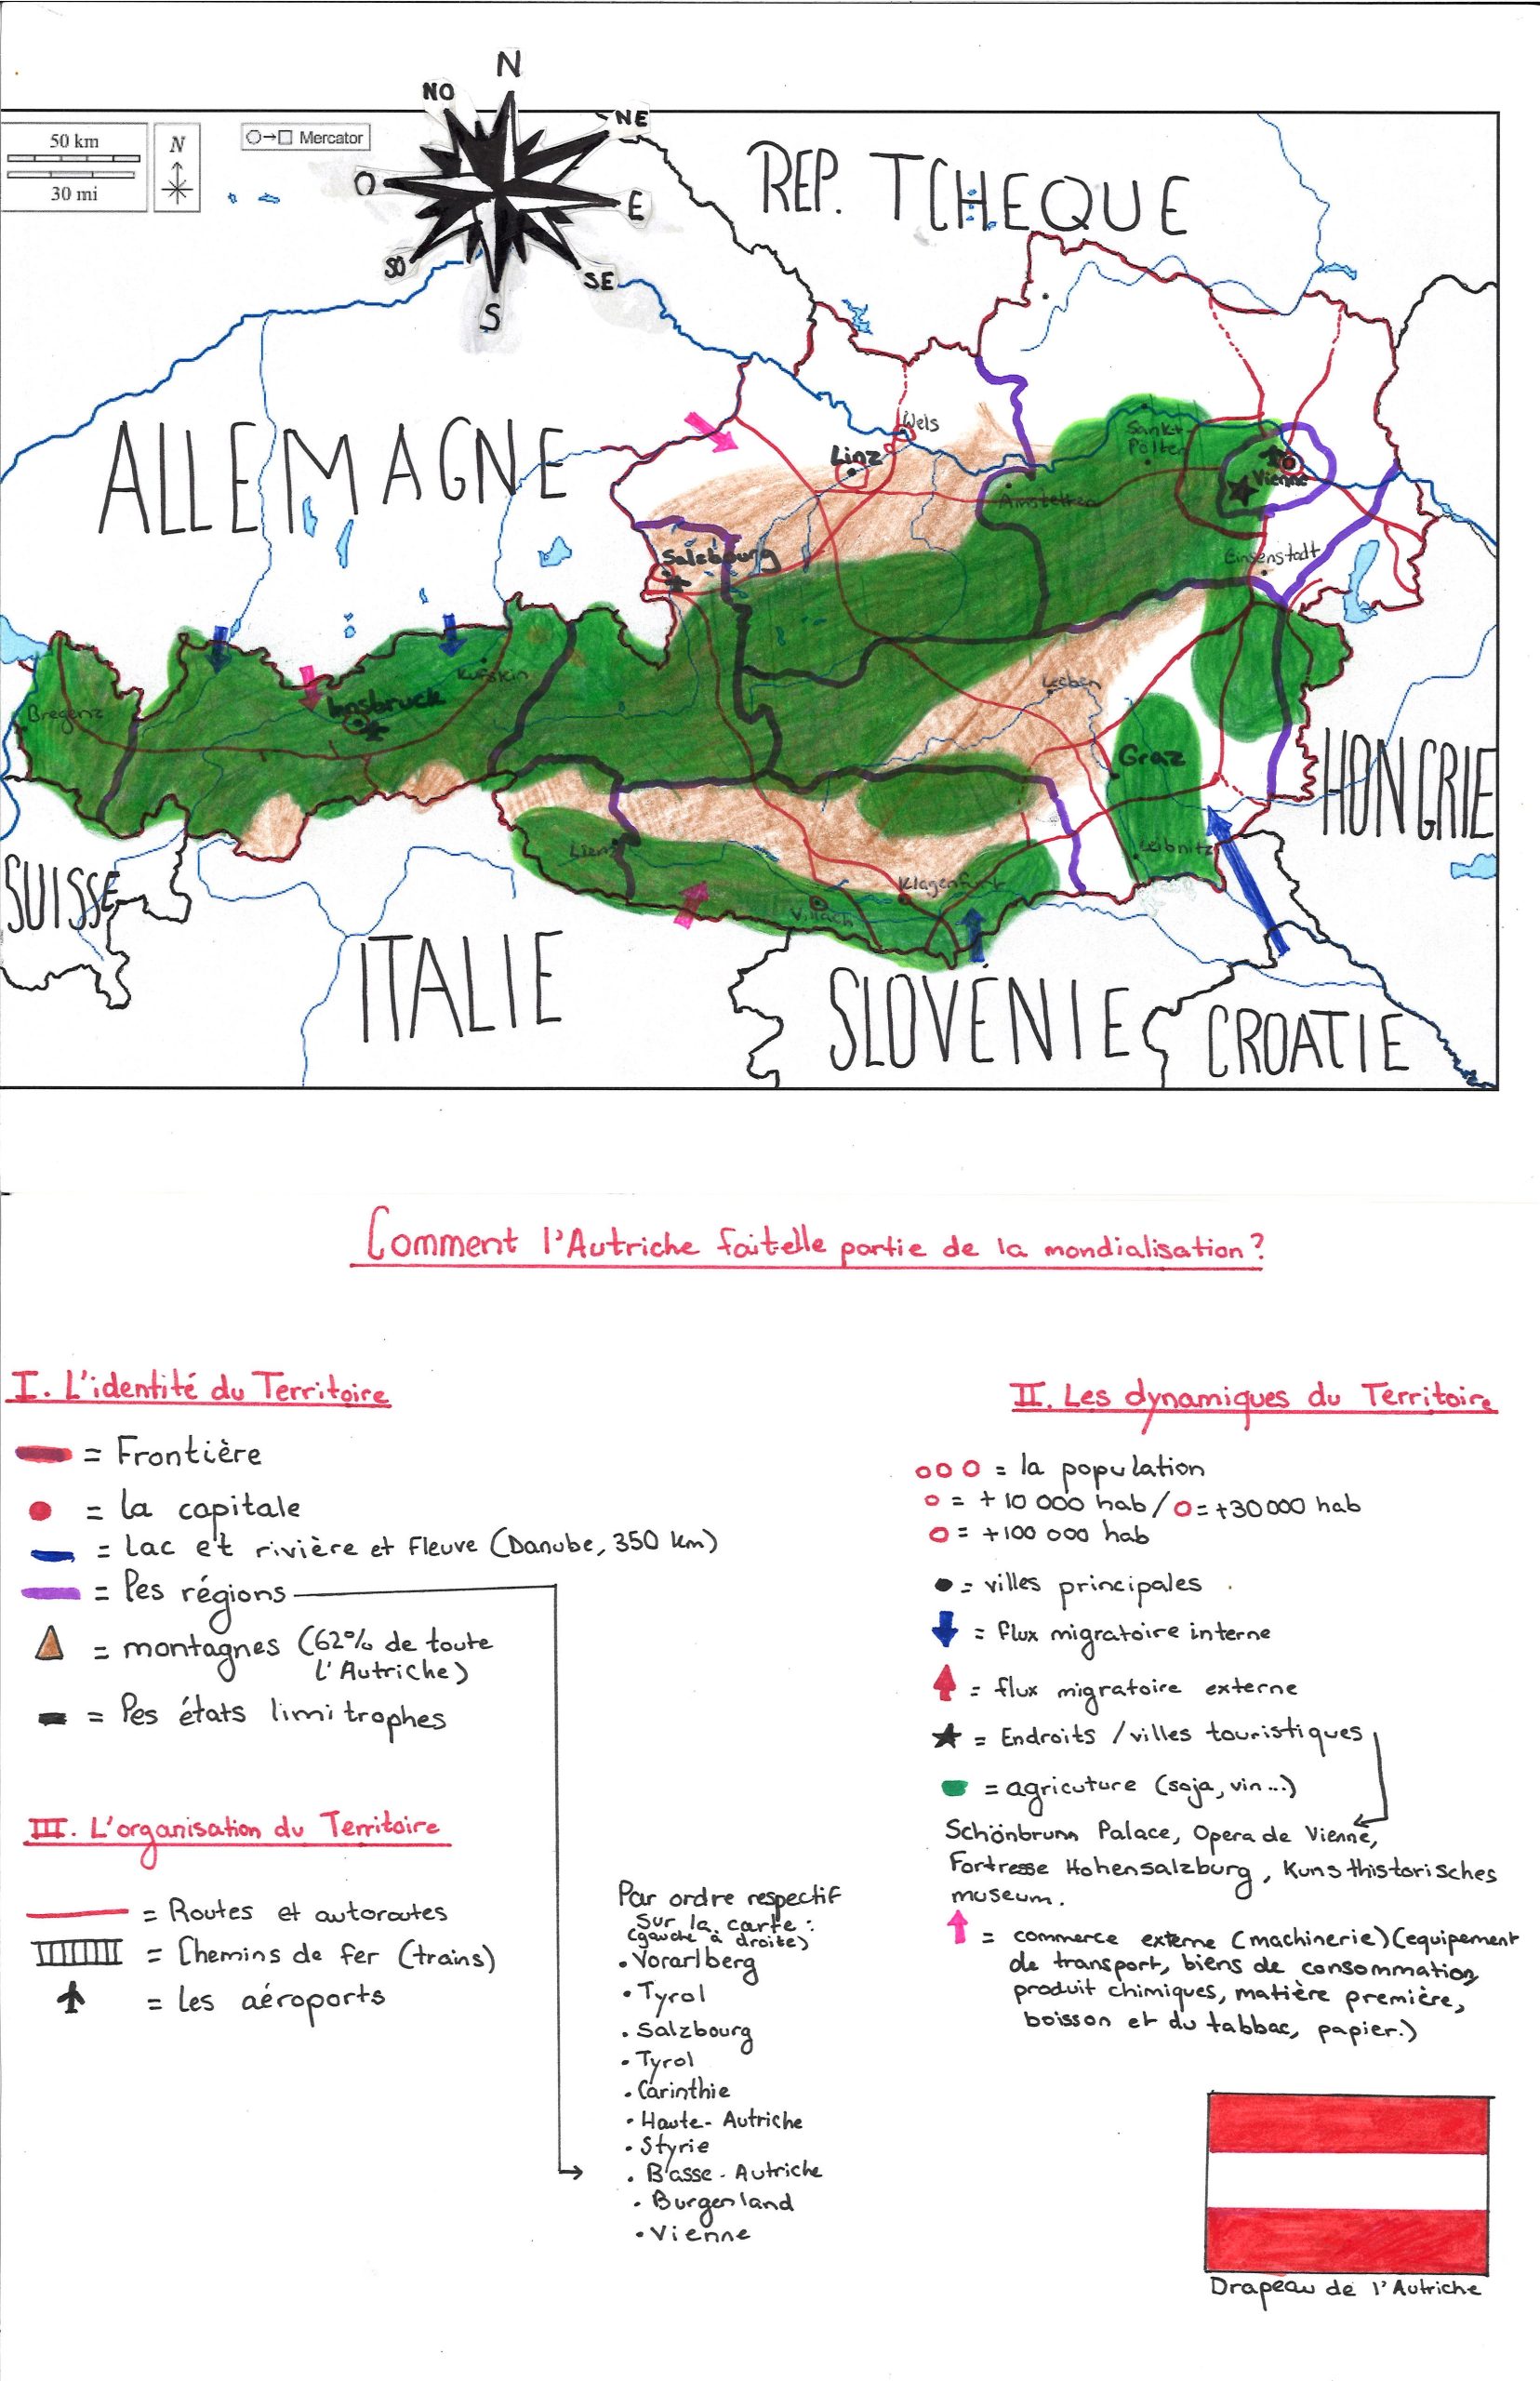 N
NO
NE
50 km
30 mi
N
Mercator
O
E
SO
SE
S
REP. TCHEQUE
ALLEMAGNE
Wels
Linz
Sankt-
Pölten
Vienne
Amstetten
Salzbourg
Einsenstadt
Kufskin
Leoben
Innsbruck
Bregenz
Graz
HONGRIE
Lienz
Leibnitz
Klagenfurt
Villach
SUISSE
ITALIE
SLOVÉNIE
CROATIE
Comment l'Autriche fait-elle partie de la mondialisation?
I. L'identité du Territoire
= Frontière
= la capitale
= Lac et rivière et Fleuve (Danube, 350 km)
= Les régions
= montagnes (62% de toute
l'Autriche)
= Les états limitrophes
III. L'organisation du Territoire
= Routes et autoroutes
= Chemins de fer (trains)
= les aéroports
Par ordre respectif
sur la carte :
(gauche à droite)
• Vorarlberg
• Tyrol
• Salzbourg
• Tyrol
• Carinthie
• Haute-Autriche
• Styrie
• Basse-Autriche
• Burgenland
• Vienne
II. Les dynamiques du Territoire
= la population
= +10 000 hab / = +30 000 hab
= +100 000 hab
= villes principales
= flux migratoire interne
= flux migratoire externe
= Endroits / villes touristiques
= agricuture (soja, vin...)
Schönbrunn Palace, Opera de Vienne,
Fortresse Hohensalzburg, Kunsthistorisches
museum.
= commerce externe (machinerie) (equipement
de transport, biens de consommation,
produit chimiques, matière première,
boisson et du tabbac, papier.)
Drapeau de l'Autriche